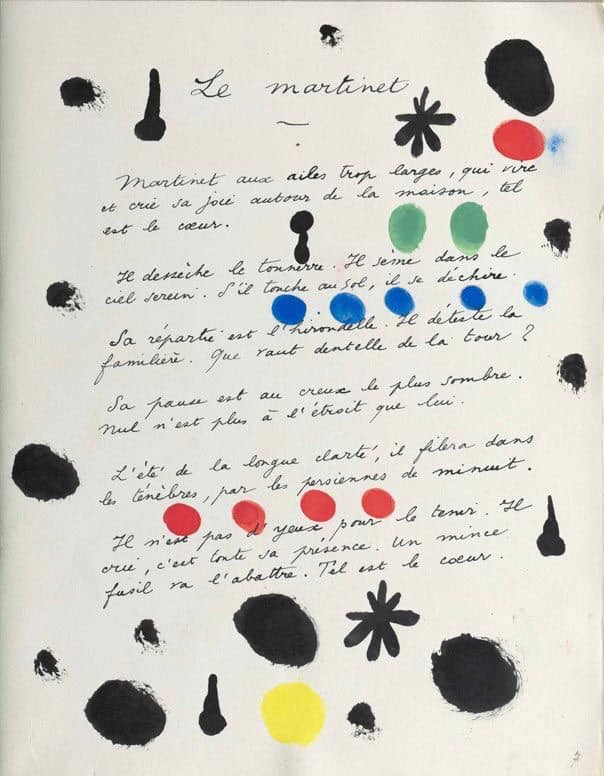 Le martinet
Martinet aux ailes trop larges, qui vire
et crie sa joie autour de la maison, tel
est le cœur.
Il dessèche le tonnerre. Il sème dans le
ciel serein. S'il touche au sol, il se déchire.
Sa répartie est l'hirondelle. Il déteste la
familière. Que vaut dentelle de la tour ?
Sa pause est au creux le plus sombre.
Nul n'est plus à l'étroit que lui.
L'été de la longue clarté, il filera dans
les ténèbres, par les persiennes de minuit.
Il n'est pas d'yeux pour le tenir. Il
crie, c'est toute sa présence. Un mince
fusil va l'abattre. Tel est le cœur.
7